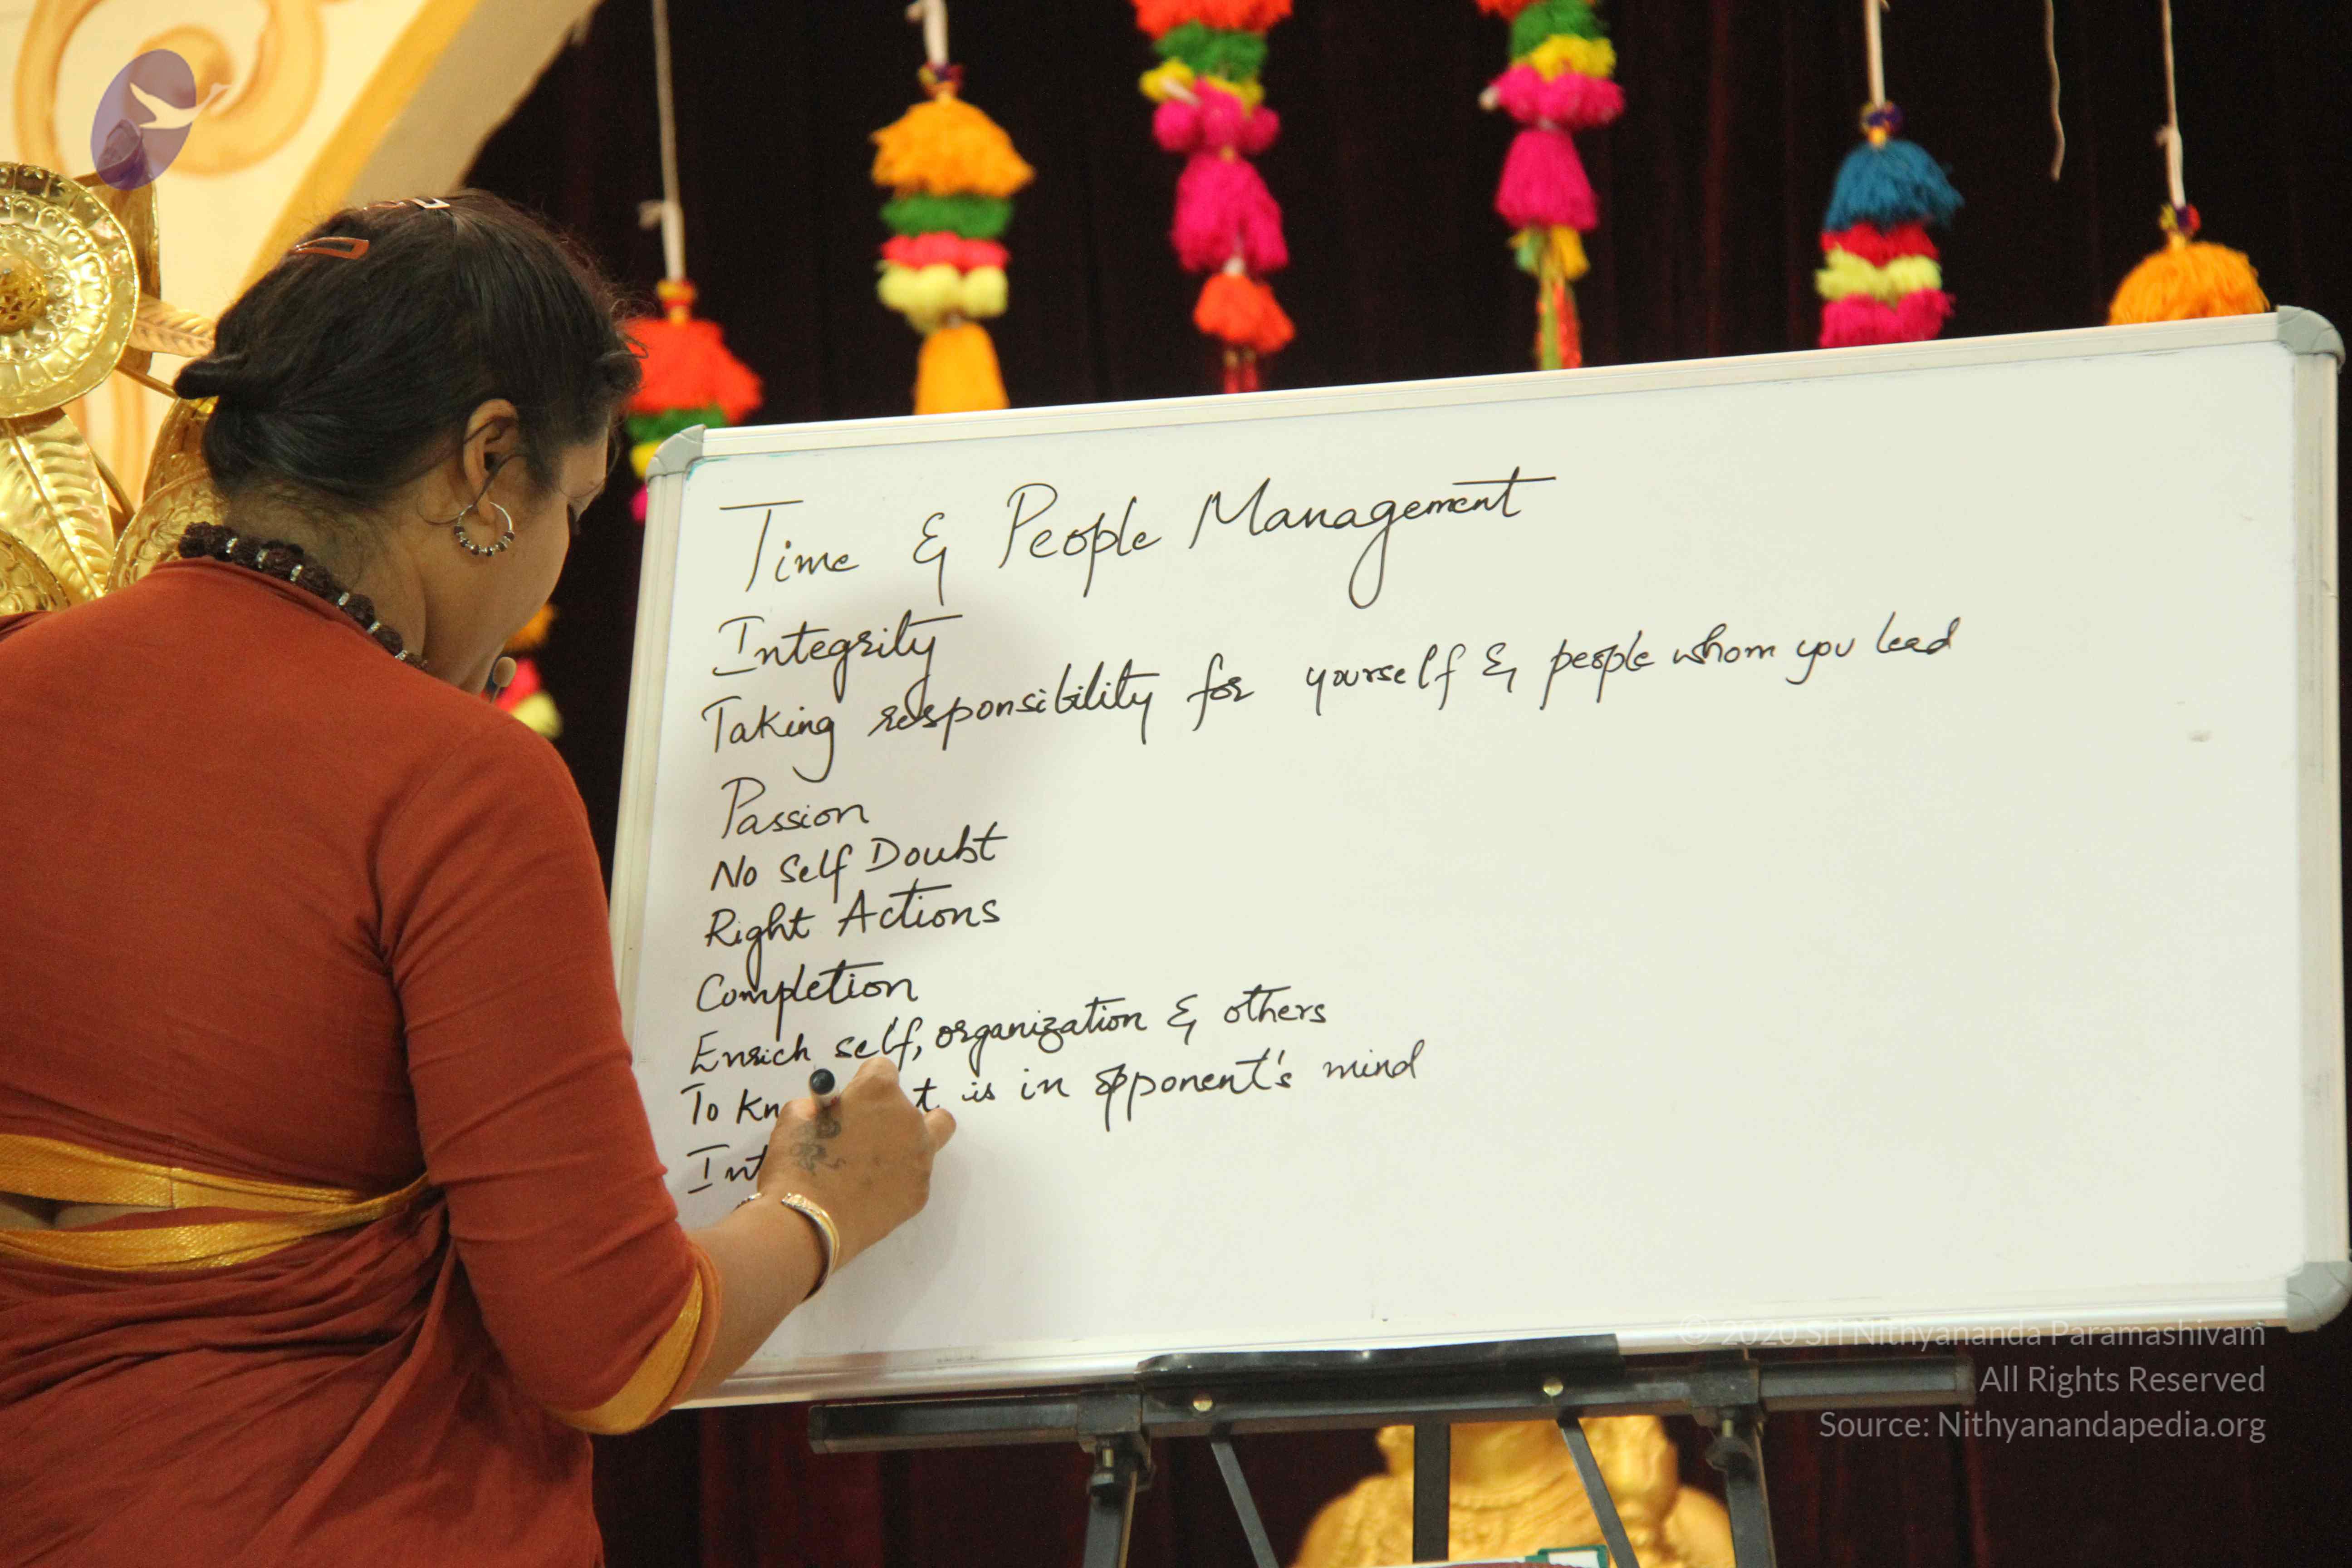 Time & People Management
Integrity
Taking responsibility for yourself & people whom you lead
Passion
No Self Doubt
Right Actions
Completion
Enrich self, organization & others
To is in opponent's mind
© 2020 Sri Nithyananda Paramashivam
All Rights Reserved
Source: Nithyanandapedia.org